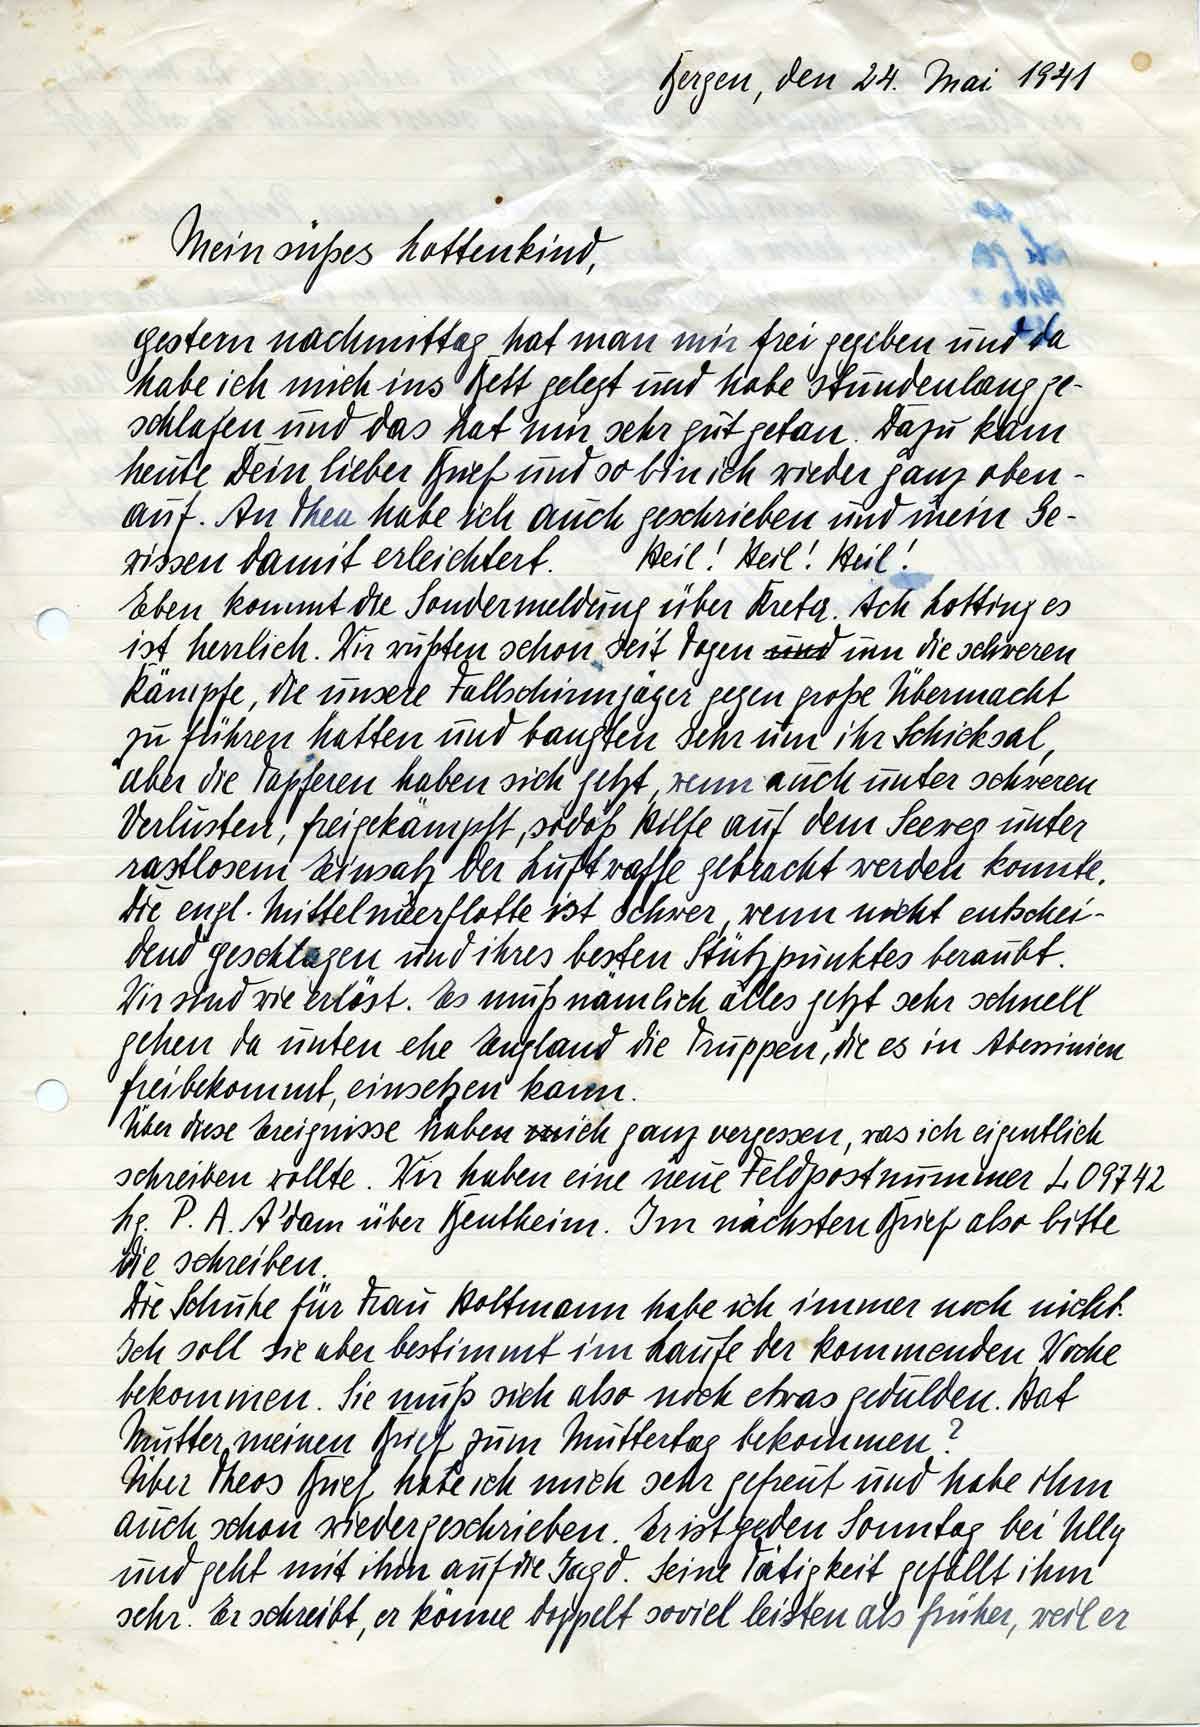 Bergen, den 24. Mai 1941
Mein süßes Lottenkind,
gestern nachmittag hat man mir frei gegeben und da
habe ich mich ins Bett gelegt und habe stundenlang ge-
schlafen und das hat mir sehr gut getan. Dazu kam
heute Dein lieber Brief und so bin ich wieder ganz oben-
auf. An Thea habe ich auch geschrieben und mein Ge-
wissen damit erleichtert. Heil! Heil! Heil!
Eben kommt die Sondermeldung über Kreta. Ach Lotting es
ist herrlich. Wir wußten schon seit Tagen und um die schweren
Kämpfe, die unsere Fallschirmjäger gegen große Übermacht
zu führen hatten und bangten sehr um ihr Schicksal,
aber die Tapferen haben sich jetzt, wenn auch unter schweren
Verlusten, freigekämpft, sodaß Hilfe auf dem Seeweg unter
rastlosem Einsatz der Luftwaffe gebracht werden konnte.
Die engl. Mittelmeerflotte ist schwer, wenn nicht entschei-
dend geschlagen und ihres besten Stützpunktes beraubt.
Wir sind wie erlöst. Es muß nämlich alles jetzt sehr schnell
gehen da unten ehe England die Truppen, die es in Abessinien
freibekommt, einsetzen kann.
Über diese Ereignisse haben mich ganz vergessen, was ich eigentlich
schreiben wollte. Wir haben eine neue Feldpostnummer L 09742
Lg. P. A. A'dam über Bentheim. Im nächsten Brief also bitte
die schreiben.
Die Schuhe für Frau Holtmann habe ich immer noch nicht.
Ich soll sie aber bestimmt im Laufe der kommenden Woche
bekommen. Sie muß sich also noch etwas gedulden. Hat
Mutter meinen Brief zum Muttertag bekommen?
Über Theos Brief habe ich mich sehr gefreut und habe ihm
auch schon wiedergeschrieben. Er ist jeden Sonntag bei Ully
und geht mit ihm auf die Jagd. Seine Tätigkeit gefällt ihm
sehr. Er schreibt, er könne doppelt soviel leisten als früher, weil er